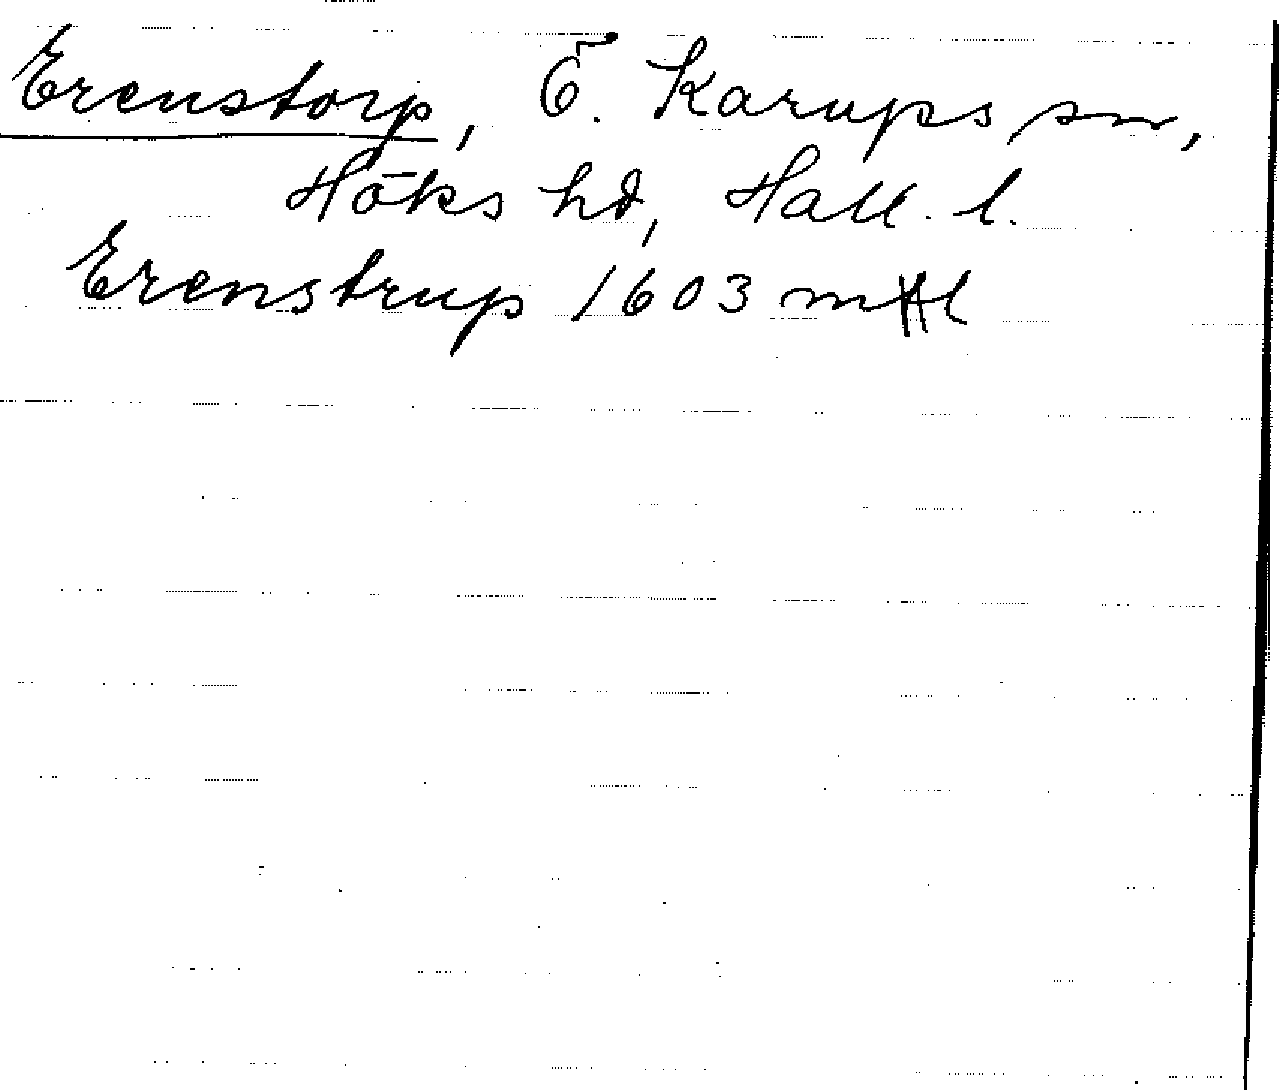 Erenstorp, Ö. Karups sn,
Höks hd, Hall. l.
Erenstrup 1603